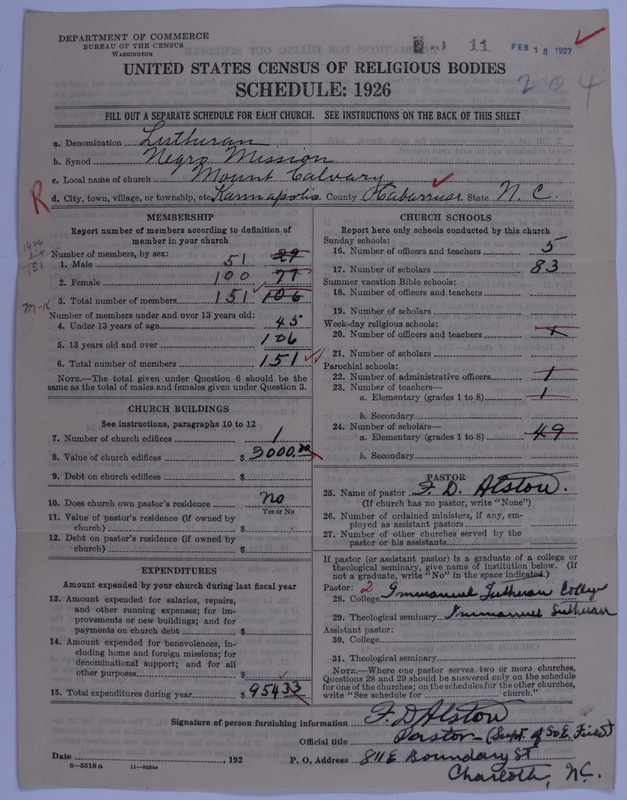 DEPARTMENT OF COMMERCE
BUREAU OF THE CENSUS
WASHINGTON
11
FEB 18 1927
204
UNITED STATES CENSUS OF RELIGIOUS BODIES
SCHEDULE: 1926
FILL OUT A SEPARATE SCHEDULE FOR EACH CHURCH. SEE INSTRUCTIONS ON THE BACK OF THIS SHEET
a. Denomination Lutheran
b. Synod Negro Mission
c. Local name of church Mount Calvary
R
d. City, town, village, or township, etc. Kannapolis County Cabarrus State N. C.
MEMBERSHIP
Report number of members according to definition of member in your church
Number of members, by sex:
1. Male 51 29
2. Female 100 77
3. Total number of members 151 106
Number of members under and over 13 years old:
4. Under 13 years of age 45
5. 13 years old and over 106
6. Total number of members 151
NOTE.—The total given under Question 6 should be the same as the total of males and females given under Question 3.
CHURCH BUILDINGS
See instructions, paragraphs 10 to 12
7. Number of church edifices 1
8. Value of church edifices $ 3000.00
9. Debt on church edifices $
10. Does church own pastor's residence no
Yes or No
11. Value of pastor's residence (if owned by church) $
12. Debt on pastor's residence (if owned by church) $
EXPENDITURES
Amount expended by your church during last fiscal year
13. Amount expended for salaries, repairs, and other running expenses; for improvements or new buildings; and for payments on church debt $
14. Amount expended for benevolences, including home and foreign missions; for denominational support; and for all other purposes $
15. Total expenditures during year $ 954 33
CHURCH SCHOOLS
Report here only schools conducted by this church
Sunday schools:
16. Number of officers and teachers 5
17. Number of scholars 83
Summer vacation Bible schools:
18. Number of officers and teachers
19. Number of scholars
Week-day religious schools:
20. Number of officers and teachers
21. Number of scholars
Parochial schools:
22. Number of administrative officers 1
23. Number of teachers—
a. Elementary (grades 1 to 8) 1
b. Secondary
24. Number of scholars—
a. Elementary (grades 1 to 8) 49
b. Secondary
PASTOR
25. Name of pastor F. D. Alston.
(If church has no pastor, write "None")
26. Number of ordained ministers, if any, employed as assistant pastors
27. Number of other churches served by the pastor or his assistants
If pastor (or assistant pastor) is a graduate of a college or theological seminary, give name of institution below. (If not a graduate, write "No" in the space indicated.)
Pastor: 2
28. College Immanuel Lutheran College
29. Theological seminary Immanuel Lutheran
Assistant pastor:
30. College
31. Theological seminary
NOTE.—Where one pastor serves two or more churches, Questions 28 and 29 should be answered only on the schedule for one of the churches; on the schedules for the other churches, write "See schedule for church."
Signature of person furnishing information F. D. Alston
Official title Pastor—(Supt. of So E. Field)
Date , 192 P. O. Address 811 E Boundary St
8—5518a 11—9054a
Charlotte, N.C.